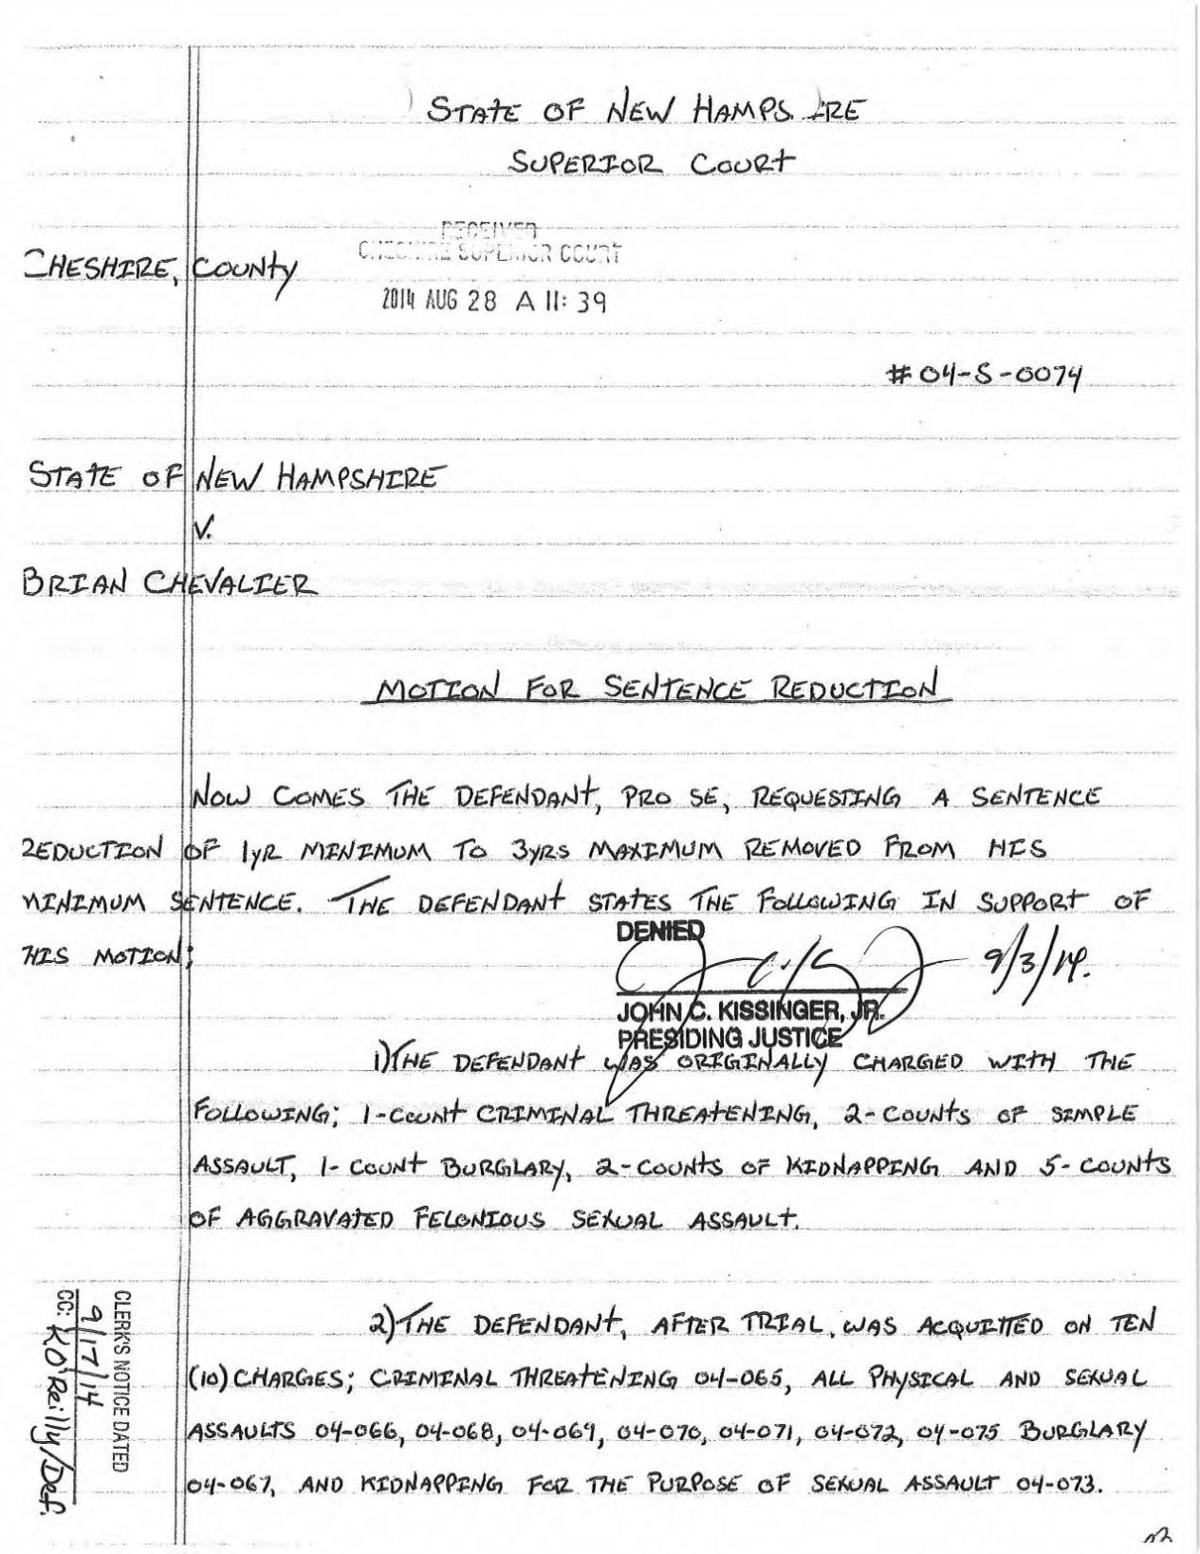 STATE OF NEW HAMPS IRE
SUPERIOR COURT
RECEIVED
CHESHIRE SUPERIOR COURT
CHESHIRE, COUNTY
2014 AUG 28 A 11: 39
# 04-S-0074
STATE OF NEW HAMPSHIRE
V.
BRIAN CHEVALIER
MOTION FOR SENTENCE REDUCTION
NOW COMES THE DEFENDANT, PRO SE, REQUESTING A SENTENCE
REDUCTION OF 1yR MINIMUM TO 3yRS MAXIMUM REMOVED FROM HIS
MINIMUM SENTENCE. THE DEFENDANT STATES THE FOLLOWING IN SUPPORT OF
HIS MOTION;
DENIED
9/3/14.
JOHN C. KISSINGER, JR.
PRESIDING JUSTICE
1) THE DEFENDANT WAS ORIGINALLY CHARGED WITH THE
FOLLOWING; 1-COUNT CRIMINAL THREATENING, 2-COUNTS OF SIMPLE
ASSAULT, 1-COUNT BURGLARY, 2-COUNTS OF KIDNAPPING AND 5-COUNTS
OF AGGRAVATED FELONIOUS SEXUAL ASSAULT.
2) THE DEFENDANT, AFTER TRIAL, WAS ACQUITTED ON TEN
(10) CHARGES; CRIMINAL THREATENING 04-065, ALL PHYSICAL AND SEXUAL
ASSAULTS 04-066, 04-068, 04-069, 04-070, 04-071, 04-072, 04-075 BURGLARY
04-067, AND KIDNAPPING FOR THE PURPOSE OF SEXUAL ASSAULT 04-073.
CLERK'S NOTICE DATED
9/17/14
CC: KO'Reilly/Def.